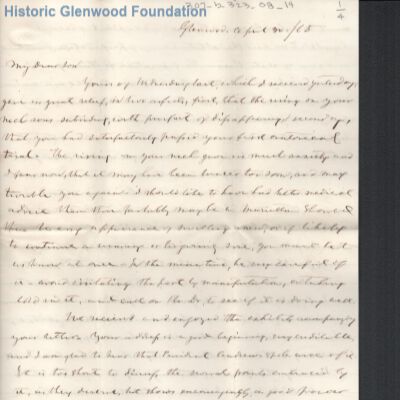 Historic Glenwood Foundation
1/4
Glenwood April /68
My dear Son
Yours of Wednesday last, which I received yesterday,
gave us great relief, in two respects, first, that the rising on your
neck was subsiding, with prospect of disappearing; second,
that you had satisfactorily passed your first
The rising on your neck gave us much anxiety and
I fear now, that it may have been too soon, and may
trouble you again. I should like to have had better medical
advice than there probably may be in Marietta. Should
there be any appearance of swelling or if likely
to continue a running or lingering sore, you must let
us know at once. In the meantime, be very careful
to avoid irritating the part by manipulating, or taking
cold in it, and call on the Dr. to see if it is doing well.
We received and enjoyed the exhibits accompanying
your letter. Your address is a good beginning, very creditable,
and I am glad to know that President Andrews spoke well of it.
It is too short to the several points embraced by
it, as they deserve, but shows encouragingly, a good power